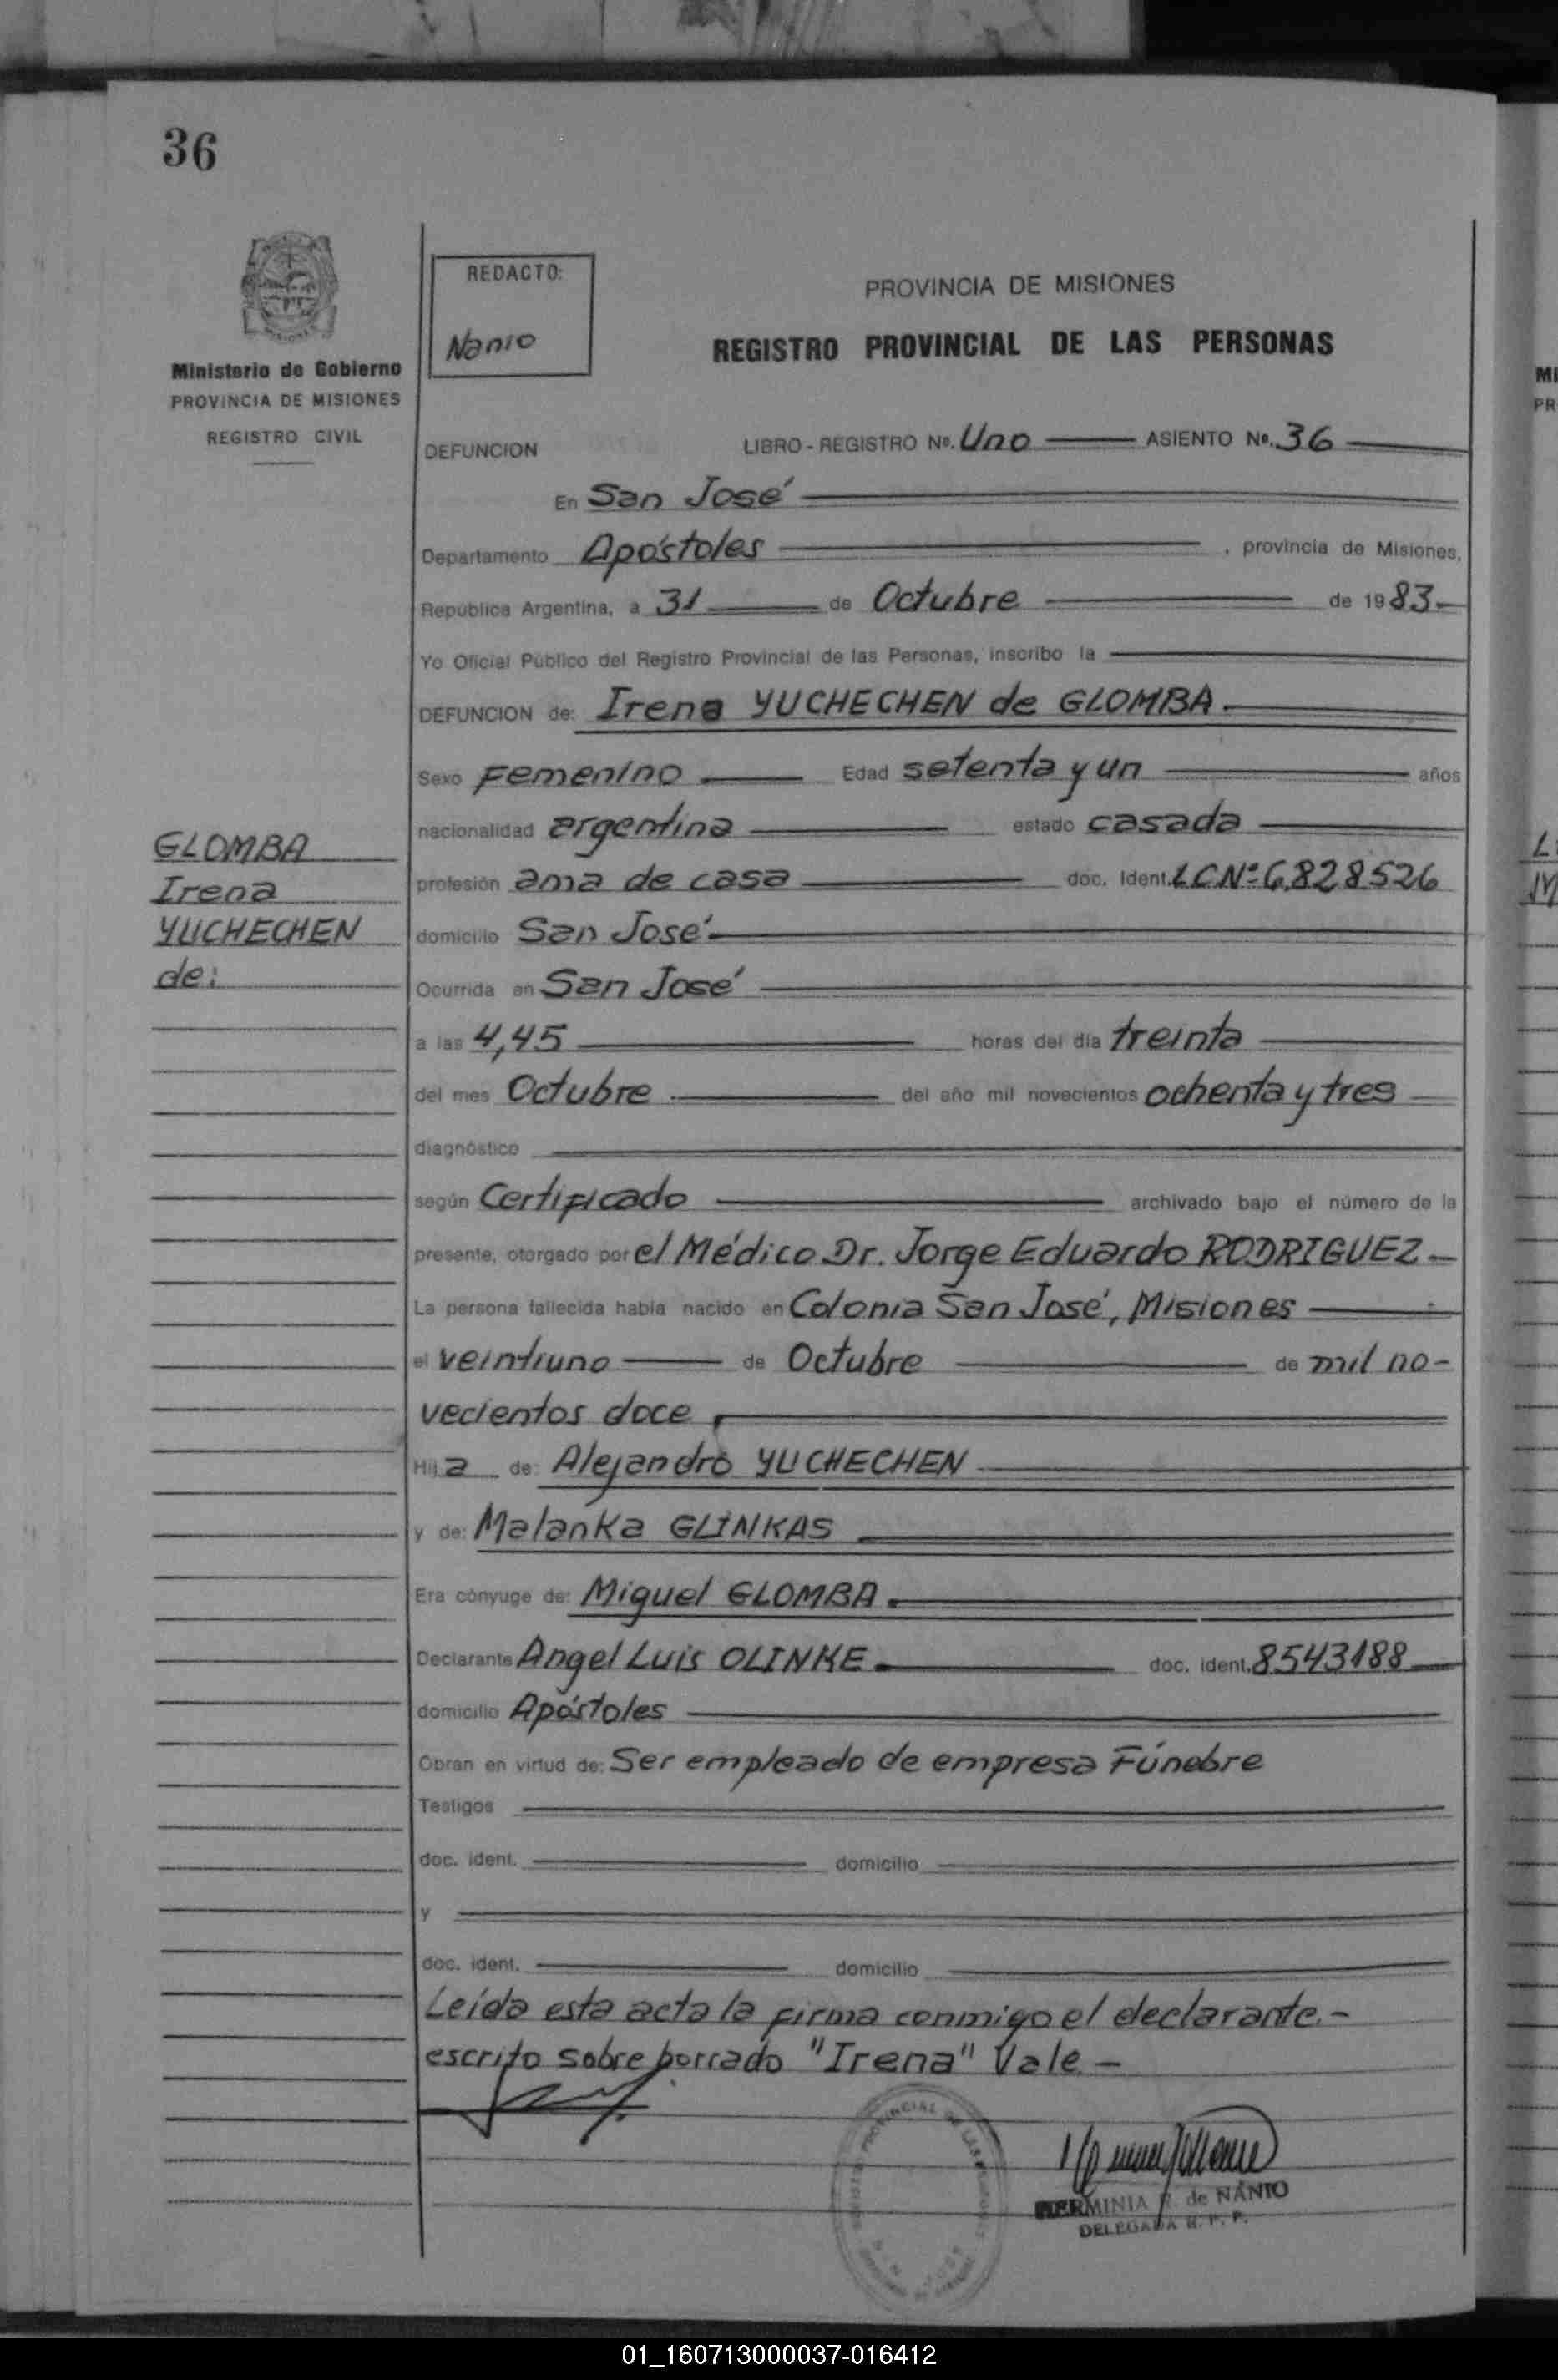 36
REDACTO:
Nanio
PROVINCIA DE MISIONES
REGISTRO PROVINCIAL DE LAS PERSONAS
Ministerio de Gobierno
PROVINCIA DE MISIONES
REGISTRO CIVIL
DEFUNCION LIBRO - REGISTRO Nº. Uno ASIENTO Nº. 36
En San José
Departamento Apóstoles , provincia de Misiones,
República Argentina, a 31 de Octubre de 1983.
Yo Oficial Público del Registro Provincial de las Personas, inscribo la
DEFUNCION de: Irena YUCHECHEN de GLOMBA.
Sexo Femenino Edad setenta y un años
nacionalidad argentina estado casada
profesión ama de casa doc. Ident. LC Nº 6.828526
domicilio San José.
Ocurrida en San José
a las 4,45 horas del día treinta
del mes Octubre del año mil novecientos ochenta y tres
diagnóstico
según Certificado archivado bajo el número de la
presente, otorgado por el Médico Dr. Jorge Eduardo RODRIGUEZ
La persona fallecida había nacido en Colonia San José, Misiones
el veintiuno de Octubre de mil no-
vecientos doce
Hij a de: Alejandro YUCHECHEN
y de: Malanka GLINKAS
Era cónyuge de: Miguel GLOMBA.
Declarante Angel Luis OLINKE. doc. ident. 8543188
domicilio Apóstoles
Obran en virtud de: Ser empleado de empresa Fúnebre
Testigos
doc. ident. domicilio
y
doc. ident. domicilio
Leída esta acta la firma conmigo el declarante.-
escrito sobre borrado "Irena" Vale -
GLOMBA
Irena
YUCHECHEN
de:
HERMINIA de NANIO
DELEGADA R. P. P.
MI
PR
01_160713000037-016412